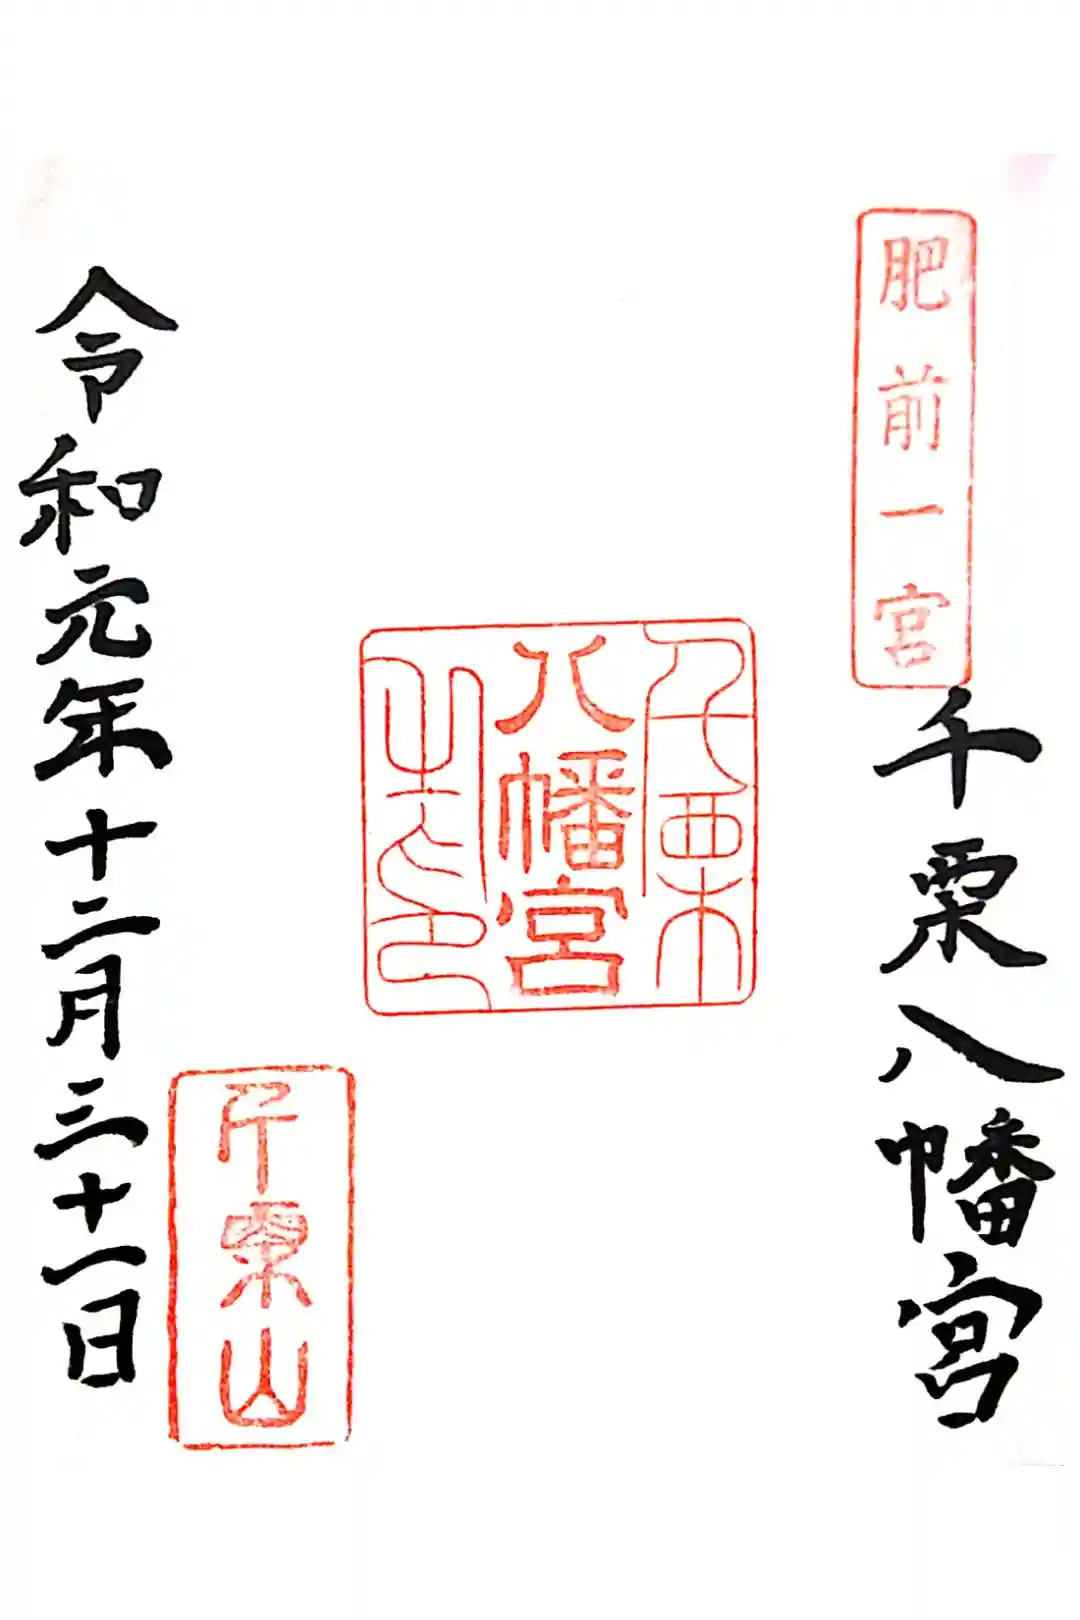 肥前一宮
千栗八幡宮
千栗
八幡宮
之印
千栗山
令和元年十二月三十一日